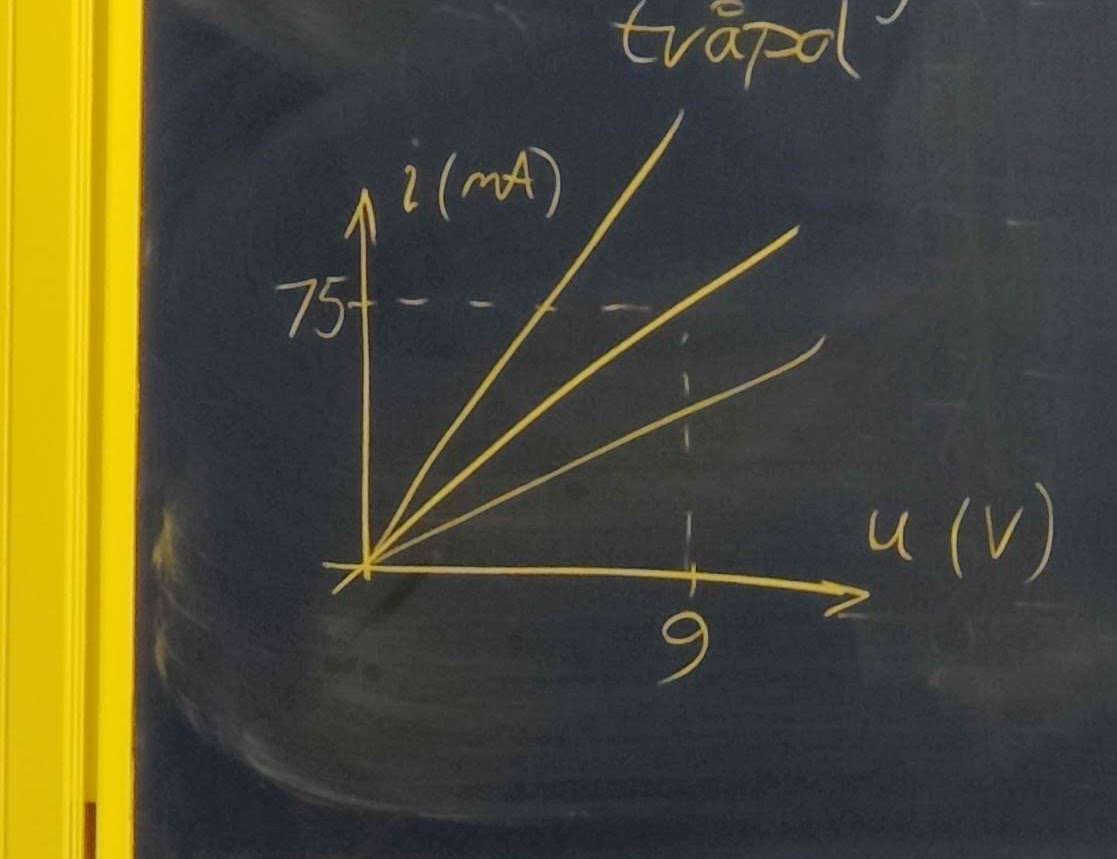 tvåpol
i (mA)
75
u (V)
9